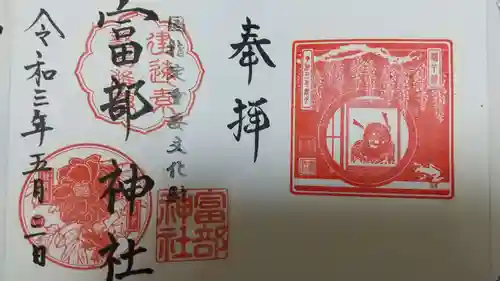 奉拝
国指定重要文化財
富部神社
令和三年五月二日
富部
神社